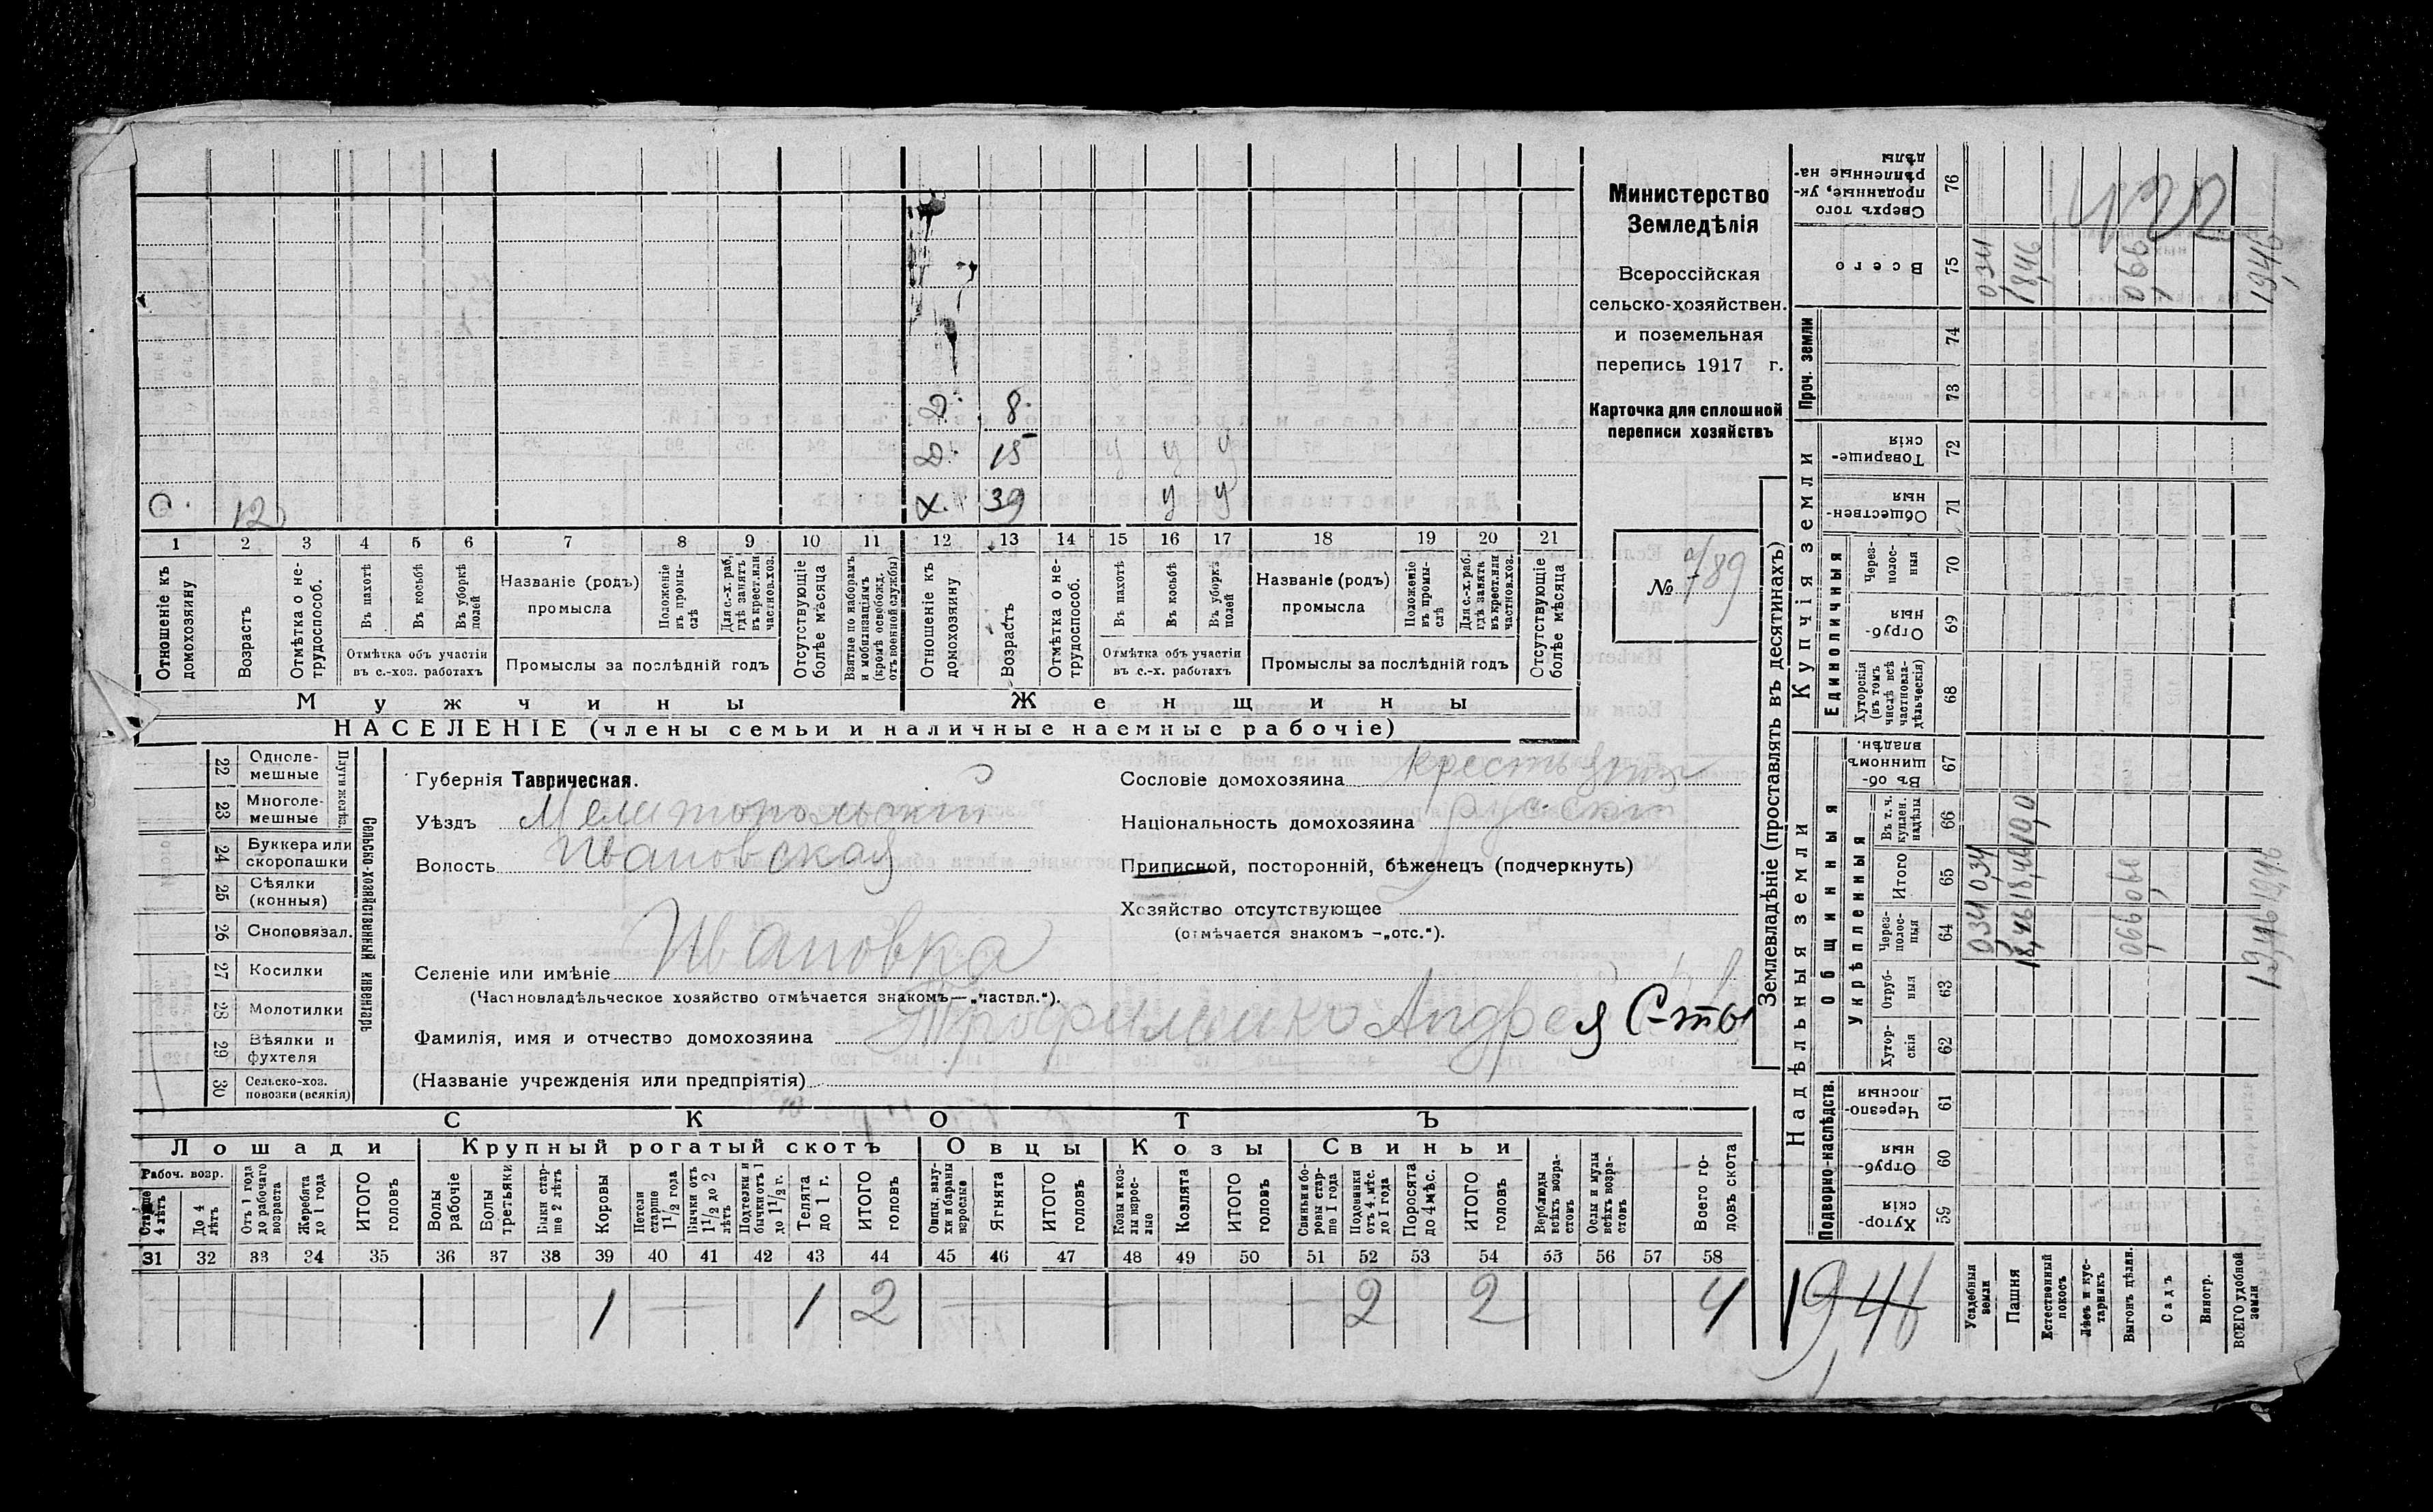 Министерство
Земледѣлія
Всероссійская
сельско-хозяйствен.
и поземельная
перепись 1917 г.
Карточка для сплошной
переписи хозяйствъ
№ 789
Д. 8.
Д. 15 у у у
С. 12 Х. 39 у у
1 2 3 4 5 6 7 8 9 10 11 12 13 14 15 16 17 18 19 20 21
Отношеніе къ домохозяину
Возрастъ
Отмѣтка о нетрудоспособ.
Въ пахотѣ
Въ косьбѣ
Въ уборкѣ полей
Отмѣтка объ участіи
въ с.-хоз. работахъ
Названіе (родъ)
промысла
Положеніе въ промыслѣ
Для с.-х. раб. гдѣ занятъ въ крест. или частнов. хоз.
Промыслы за послѣдній годъ
Отсутствующіе болѣе мѣсяца
Взятые по наборамъ и мобилизаціямъ (кромѣ освобожд. отъ военной службы)
Отношеніе къ домохозяину
Возрастъ
Отмѣтка о нетрудоспособ.
Въ пахотѣ
Въ косьбѣ
Въ уборкѣ полей
Отмѣтка объ участіи
въ с.-х. работахъ
Названіе (родъ)
промысла
Положеніе въ промыслѣ
Для с.-х. раб. гдѣ занята въ крест. или частнов. хоз.
Промыслы за послѣдній годъ
Отсутствующіе болѣе мѣсяца
Мужчины Женщины
НАСЕЛЕНІЕ (члены семьи и наличные наемные рабочіе)
Сельско-хозяйственный инвентарь
Плуги желѣз.
22 Однолемешные
23 Многолемешные
24 Буккера или скоропашки
25 Сѣялки (конныя)
26 Сноповязал.
27 Косилки
28 Молотилки
29 Вѣялки и фухтеля
30 Сельско-хоз. повозки (всякія)
Губернія Таврическая.
Уѣздъ Мелитопольскій
Волость Ивановская
Селеніе или имѣніе Ивановка
(Частновладѣльческое хозяйство отмѣчается знакомъ—„частвл.“).
Фамилія, имя и отчество домохозяина Трофименко Андрея С-ты
(Названіе учрежденія или предпріятія)
Сословіе домохозяина
Національность домохозяина русскій
Приписной, посторонній, бѣженецъ (подчеркнуть)
Хозяйство отсутствующее
(отмѣчается знакомъ -„отс.“).
СКОТЪ
Лошади Крупный рогатый скотъ Овцы Козы Свиньи
Рабоч. возр.
Старше 4 лѣтъ
До 4 лѣтъ
Отъ 1 года до рабочаго возраста
Жеребята до 1 года
ИТОГО головъ
Волы рабочіе
Волы третьяки
Быки старше 2 лѣтъ
Коровы
Нетели старше 1 1/2 года
Бычки отъ 1 1/2 до 2 лѣтъ
Подтелки и бычки отъ 1 до 1 1/2 г.
Телята до 1 г.
ИТОГО головъ
Овцы, валухи и бараны взрослые
Ягнята
ИТОГО головъ
Козы и козлы взрослые
Козлята
ИТОГО головъ
Свиньи и боровы старше 1 года
Подсвинки отъ 4 мѣс. до 1 года
Поросята до 4 мѣс.
ИТОГО головъ
Верблюды всѣхъ возрастовъ
Ослы и мулы всѣхъ возрастовъ
Всего головъ скота
31 32 33 34 35 36 37 38 39 40 41 42 43 44 45 46 47 48 49 50 51 52 53 54 55 56 57 58
1 1 2 2 2 4
Землевладѣніе (проставлять въ десятинахъ)
Надѣльныя земли
Купчія земли
Проч. земли
Подворно-наслѣдств.
Общинныя
Укрѣпленныя
Единоличныя
Хуторскія 59
Отрубныя 60
Черезполосныя 61
Хуторскія 62
Отрубныя 63
Черезполосныя 64
Итого 65
Въ т. ч. куплен. надѣлы 66
Въ общинномъ владѣн. 67
Хуторскія (въ томъ числѣ всѣ частновладѣльческія) 68
Отрубныя 69
Черезполосныя 70
Общественныя 71
Товарищескія 72
73
74
Всего 75
Сверхъ того проданные, укрѣпленные надѣлы 76
Усадебныя земли 0,34 0,34 0,34
Пашня 18,46 18,46 10,0 18,46
Естественный покосъ
Лѣсъ и кустарникъ
Выгонъ дѣлян. 0,66 0,66 0,66
Садъ
Виногр.
ВСЕГО удобной земли 19,46 19,46 19,46
19,46